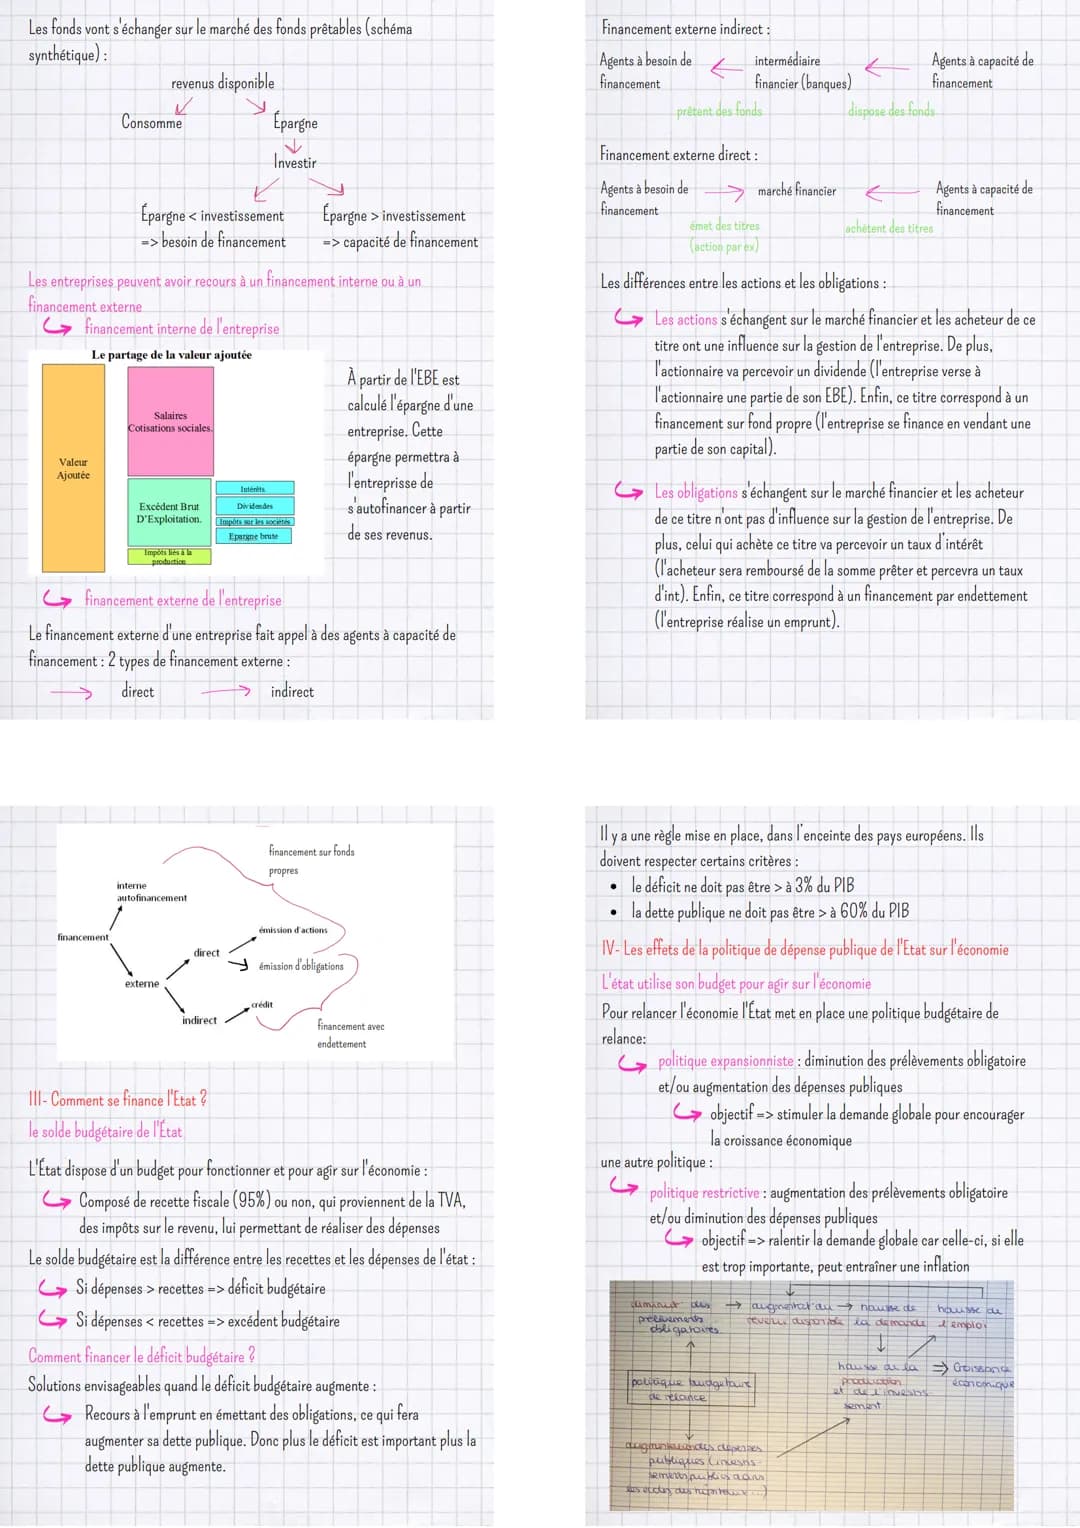 Les fonds vont s'échanger sur le marché des fonds prêtables (schéma
synthétique) :
revenus disponible
Consomme
Épargne
Investir
Épargne < investissement
=> besoin de financement
Épargne > investissement
=> capacité de financement
Les entreprises peuvent avoir recours à un financement interne ou à un
financement externe
financement interne de l'entreprise
Le partage de la valeur ajoutée
Valeur
Ajoutée
Salaires
Cotisations sociales.
Excédent Brut
D'Exploitation.
Impôts liés à la
production
Intérêts.
Dividendes
Impôts sur les sociétés
Epargne brute
À partir de l'EBE est
calculé l'épargne d'une
entreprise. Cette
épargne permettra à
l'entreprisse de
s'autofinancer à partir
de ses revenus.
financement externe de l'entreprise
Le financement externe d'une entreprise fait appel à des agents à capacité de
financement : 2 types de financement externe :
direct
indirect
Financement externe indirect :
Agents à besoin de
financement
intermédiaire
financier (banques)
Agents à capacité de
financement
prêtent des fonds
dispose des fonds
Financement externe direct :
Agents à besoin de
financement
marché financier
Agents à capacité de
financement
émet des titres
(action par ex)
achètent des titres
Les différences entre les actions et les obligations :
Les actions s'échangent sur le marché financier et les acheteur de ce
titre ont une influence sur la gestion de l'entreprise. De plus,
l'actionnaire va percevoir un dividende (l'entreprise verse à
l'actionnaire une partie de son EBE). Enfin, ce titre correspond à un
financement sur fond propre (l'entreprise se finance en vendant une
partie de son capital).
Les obligations s'échangent sur le marché financier et les acheteur
de ce titre n'ont pas d'influence sur la gestion de l'entreprise. De
plus, celui qui achète ce titre va percevoir un taux d'intérêt
(l'acheteur sera remboursé de la somme prêter et percevra un taux
d'int). Enfin, ce titre correspond à un financement par endettement
(l'entreprise réalise un emprunt).
financement sur fonds
propres
interne
autofinancement
financement
émission d'actions
direct
émission d'obligations
externe
crédit
indirect
financement avec
endettement
III- Comment se finance l'Etat ?
le solde budgétaire de l'État
L'État dispose d'un budget pour fonctionner et pour agir sur l'économie :
Composé de recette fiscale (95%) ou non, qui proviennent de la TVA,
des impôts sur le revenu, lui permettant de réaliser des dépenses
Le solde budgétaire est la différence entre les recettes et les dépenses de l'état :
Si dépenses > recettes => déficit budgétaire
Si dépenses < recettes => excédent budgétaire
Comment financer le déficit budgétaire ?
Solutions envisageables quand le déficit budgétaire augmente :
Recours à l'emprunt en émettant des obligations, ce qui fera
augmenter sa dette publique. Donc plus le déficit est important plus la
dette publique augmente.
Il y a une règle mise en place, dans l'enceinte des pays européens. Ils
doivent respecter certains critères :
• le déficit ne doit pas être > à 3% du PIB
• la dette publique ne doit pas être > à 60% du PIB
IV- Les effets de la politique de dépense publique de l'Etat sur l'économie
L'état utilise son budget pour agir sur l'économie
Pour relancer l'économie l'État met en place une politique budgétaire de
relance:
politique expansionniste : diminution des prélèvements obligatoire
et/ou augmentation des dépenses publiques
objectif => stimuler la demande globale pour encourager
la croissance économique
une autre politique :
politique restrictive : augmentation des prélèvements obligatoire
et/ou diminution des dépenses publiques
objectif => ralentir la demande globale car celle-ci, si elle
est trop importante, peut entraîner une inflation
diminut des
prélèvements
obligatoires
augmentat° du
revenu disponible
hausse de
la demande
hausse de
l'emploi
hausse de la
production
et de l'investis-
sement
=> Croissance
économique
politique budgétaire
de relance
augmentation des dépenses
publiques (investis-
sements publics dans